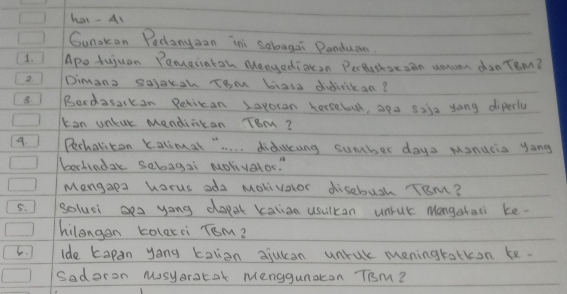 hal - 41
Gunakan Pertanyaan ini sebagai Panduan.
1. Apa tujuan Pemerintah Menyediakan Perpustakaan umum dan TBM?
2. Dimana sajakah TBM biasa didirikan?
3. Berdasarkan Petikan Laporan tersebut, apa saja yang diperlu
kan untuk Mendirikan TBM?
4. Perhatikan kalimat "..... didukung sumber daya Manusia yang
bertindak sebagai Motivator."
Mengapa harus ada Motivator disebuah TBM?
5. Solusi apa yang dapat kalian usulkan untuk Mengatasi ke-
hilangan koleksi TBM?
6. Ide kapan yang kalian ajukan untuk meningkatkan ke-
Sadaran Masyarakat Menggunakan TBM?